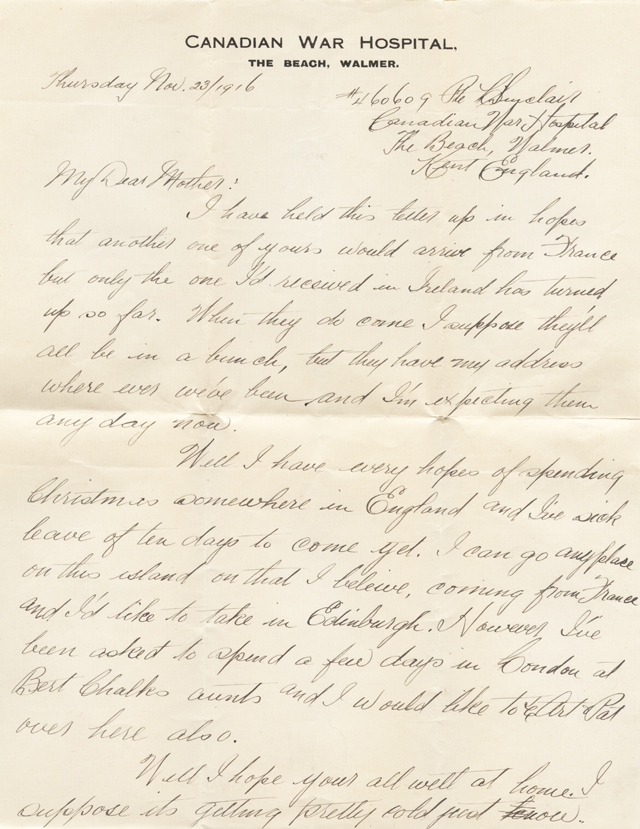 CANADIAN WAR HOSPITAL,
THE BEACH, WALMER.
Thursday Nov. 23/1916
#460609 Pte L Sinclair
Canadian War Hospital
The Beach, Walmer.
Kent England.
My Dear Mother:
I have held this letter up in hopes
that another one of yours would arrive from France
but only the one I'd received in Ireland has turned
up so far. When they do come I suppose they'll
all be in a bunch, but they have my address
where ever we've been and I'm expecting them
any day now.
Well I have every hopes of spending
Christmas somewhere in England and I've sick
leave of ten days to come yet. I can go any place
on this island on that I beleive, coming from France
and I'd like to take in Edinburgh. However I've
been asked to spend a few days in London at
Bert Chalks aunts and I would like to Art & Pat
over here also.
Well I hope your all well at home. I
suppose its getting pretty cold just now.